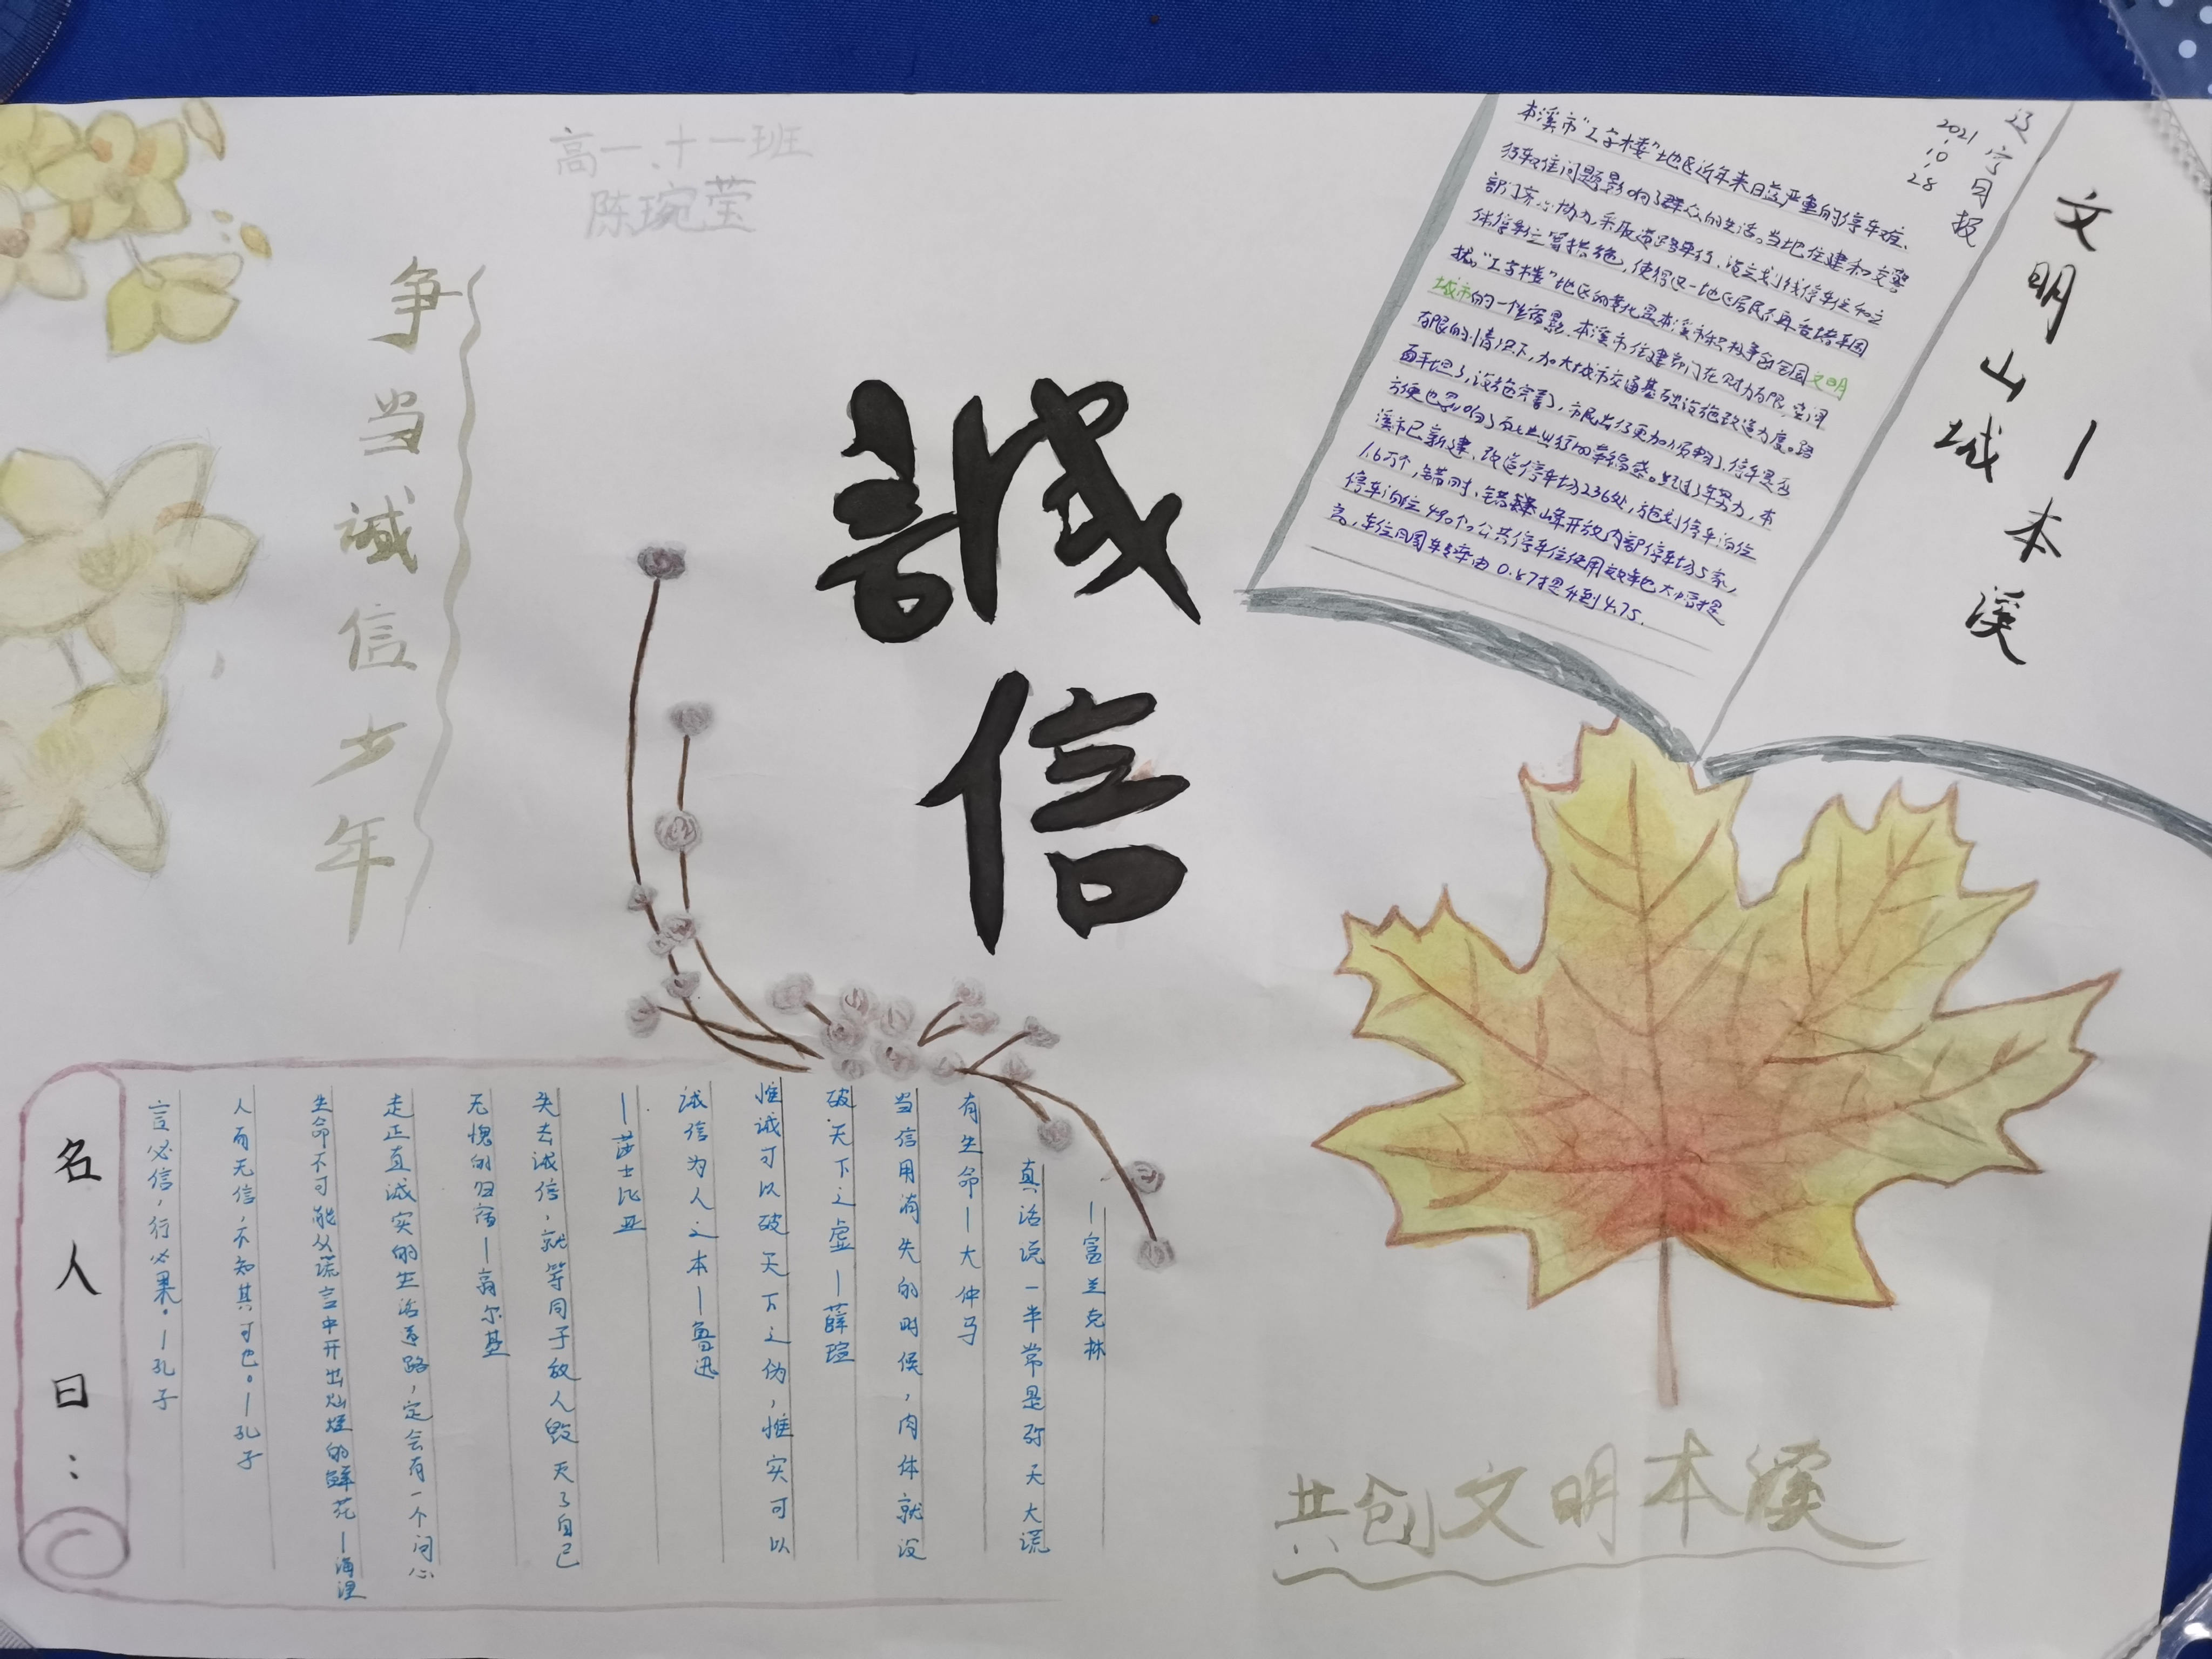 高一、十一班
陈琬莹
争当诚信少年
誠信
文明山城
—本溪
辽宁日报
2021.10.28
本溪市“工字楼”地区近年来日益严重的停车难、
行车难问题影响了群众的生活。当地住建和交警
部门齐心协力,采取道路单行、设立划线停车位和立
体停车位等措施,使得这一地区居民不再受堵车困
扰。“工字楼”地区的变化是本溪市积极争创全国文明
城市的一个缩影。本溪市住建部门在财力有限、空间
有限的情况下,加大城市交通基础设施改造力度。路
面平坦了,设施完善了,市民出行更加顺畅了。停车是否
方便也影响了百姓出行的幸福感。经过3年努力,本
溪市已新建、改造停车场236处,施划停车泊位
1.6万个,错时、错峰开放内部停车场5家,
停车泊位490个。公共停车位使用效率也大幅提
高,车位日周转率由0.87提升到4.75.
名人曰:
言必信,行必果。—孔子
人而无信,不知其可也。—孔子
生命不可能从谎言中开出灿烂的鲜花—海涅
走正直诚实的生活道路,定会有一个问心
无愧的归宿—高尔基
失去诚信,就等同于敌人毁灭了自己
—莎士比亚
诚信为人之本—鲁迅
惟诚可以破天下之伪,惟实可以
破天下之虚—薛瑄
当信用消失的时候,肉体就没
有生命—大仲马
真话说一半常是弥天大谎
—富兰克林
共创文明本溪